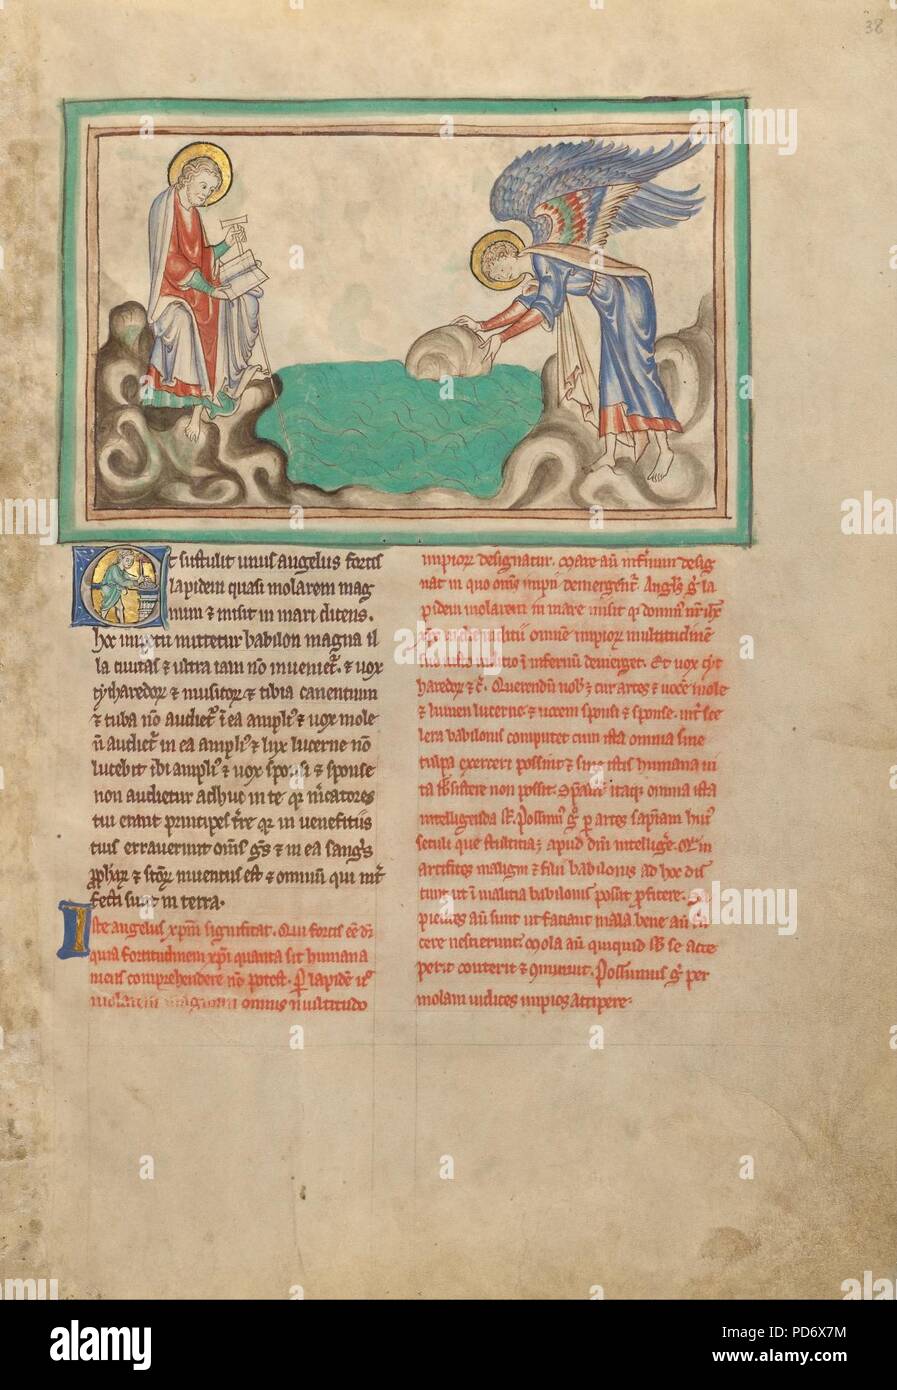 38
Et sustulit unus angelus fortis
lapidem quasi molarem mag
num ⁊ misit in mari dicens.
hoc impetu mittetur babilon magna il
la ciuitas ⁊ ultra iam nō inueniet᷑. ⁊ uox
cytharedoꝝ ⁊ musicoꝝ ⁊ tibia canentium
⁊ tuba nō audiet᷑ ī ea ampliꝰ ⁊ uox mole
ñ audiet᷑ in ea ampliꝰ ⁊ lux lucerne nō
lucebit ibi ampliꝰ ⁊ uox sponsi ⁊ sponse
non audietur adhuc in te qꝛ m̄catores
tui erant principes t̄re qꝛ in ueneficiis
tuis errauerunt om̄s ḡs ⁊ in ea sangͥs
ꝓphaꝝ ⁊ sc̄oꝝ inuentus est ⁊ omnium qui int̄
fecti sunt in terra.
Iste angelus xp̄m significat. Qui fortis
quia fortitudinem xp̄i quanta sit humana
mens comprehendere nō potest. ꝑ lapidē
molarem magnum omnis multitudo
impioꝝ designatur. mare aū infernum desig
nat in quo om̄s impii demergent᷑. Angl̄s g̊ la
pidem molarem in mare misit qꝛ domin᷒ nr̄
in die iudicii omnem impioꝝ multitudinē
ī infernū demerget. Et uox cyt
haredoꝝ ⁊ c̄. Querendū nob̄ ⁊ cur artes ⁊ uocē mole
⁊ lumen lucerne ⁊ uocem sponsi ⁊ sponse. int̄ sce
lera babilonis computet cum ista omnia sine
culpa exerceri possint ⁊ sine istis humana ui
ta subsistere non possit. Sp̄alit᷑ itaqꝫ omnia ista
intelligenda st̄. Possum᷒ g̊ ꝑ artes sapiam hui᷒
seculi que stultitia ē apud dn̄m intellige. in
artifices maligni ⁊ filii babilonis ad hoc dis
cunt ut ī malitia babilonis possint ꝓficere. Sa
pientes aū sunt ut faciant mala bene aū fa
cere nescierunt. Mola aū quicquid sb̄ se acce
perit conterit ⁊ om̄inuit. Possumus g̊ per
molam iudices impios accipere.
a
alamy
alamy stock photo
PD6X7M
www.alamy.com